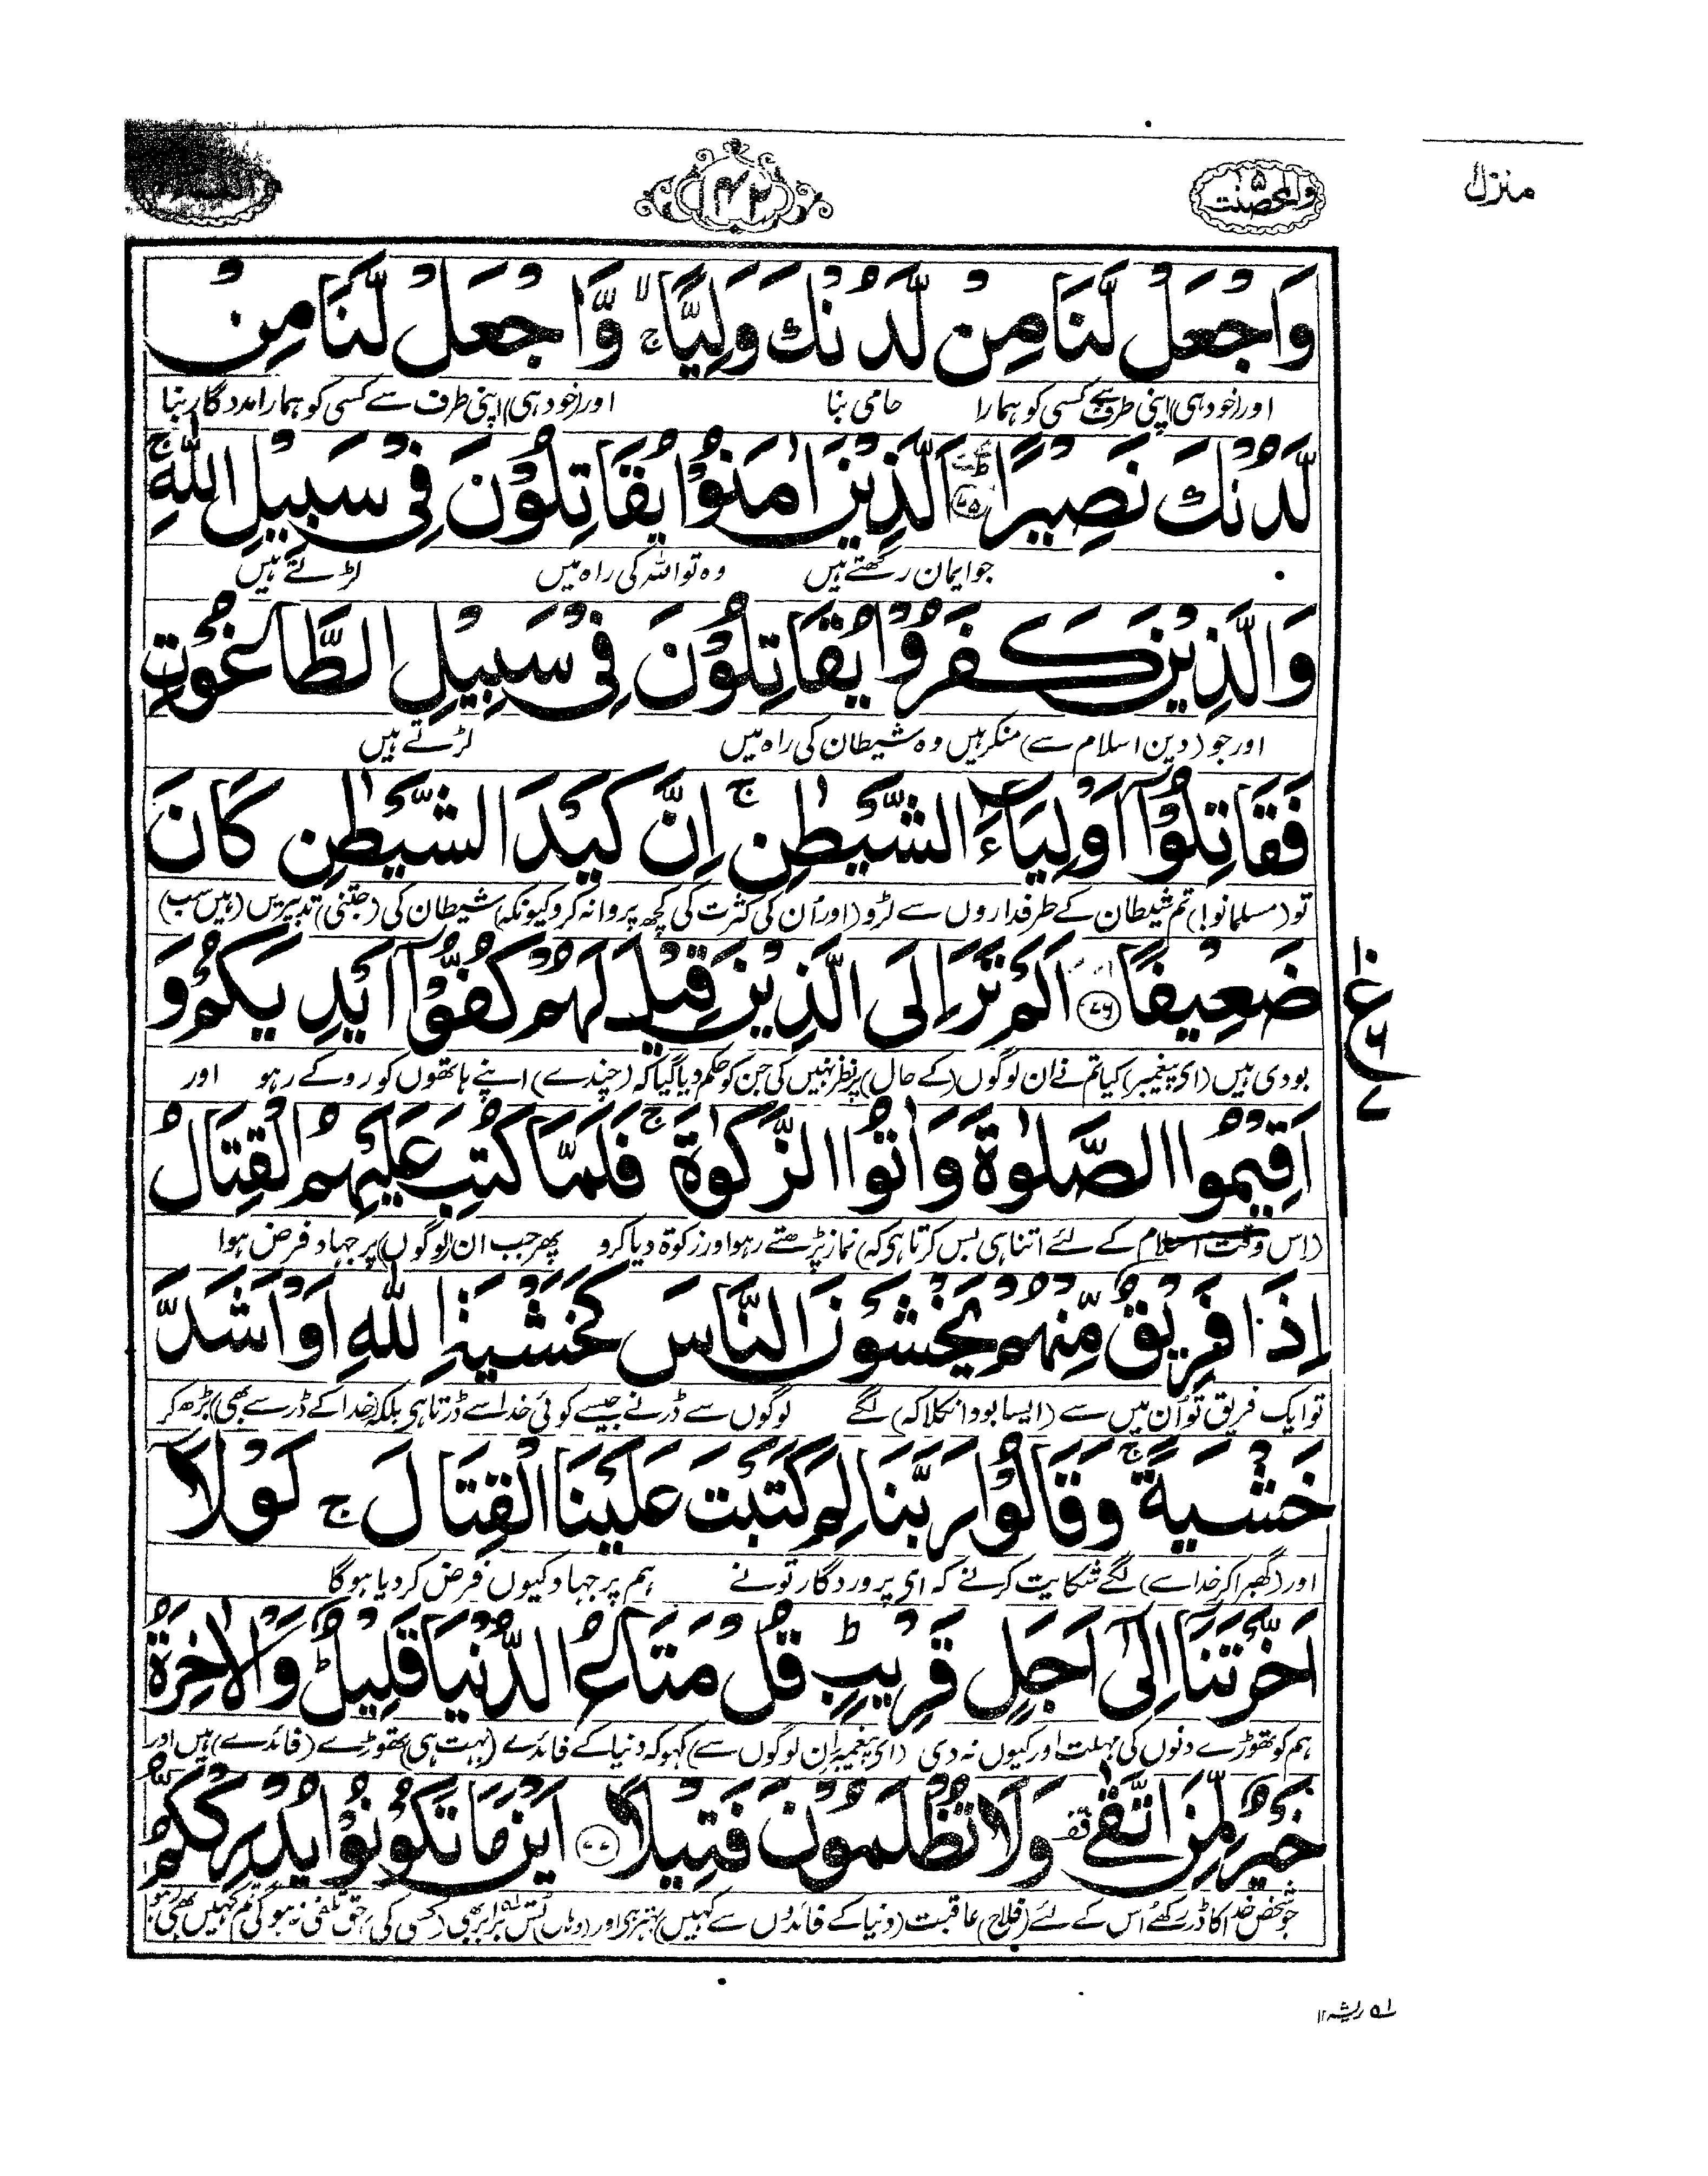 منزل
والمحصنت ۵
۱۴۲
وَاجْعَلْ لَّنَا مِنْ لَّدُنْكَ وَلِيًّا ۚۙ وَّاجْعَلْ لَّنَا مِنْ
اور (خود ہی) اپنی طرف سے کسی کو ہمارا حامی بنا اور (خود ہی) اپنی طرف سے کسی کو ہمارا مددگار بنا
لَّدُنْكَ نَصِيْرًا ؕ ﴿۷۵﴾ اَلَّذِيْنَ اٰمَنُوْا يُقَاتِلُوْنَ فِيْ سَبِيْلِ اللّٰهِ ۚ
جو ایمان رکھتے ہیں وہ تو اللہ کی راہ میں لڑتے ہیں
وَالَّذِيْنَ كَفَرُوْا يُقَاتِلُوْنَ فِيْ سَبِيْلِ الطَّاغُوْتِ
اور جو (دین اسلام سے) منکر ہیں وہ شیطان کی راہ میں لڑتے ہیں
فَقَاتِلُوْٓا اَوْلِيَآءَ الشَّيْطٰنِ ۚ اِنَّ كَيْدَ الشَّيْطٰنِ كَانَ
تو (مسلمانو!) تم شیطان کے طرفداروں سے لڑو (اور اُن کی کثرت کی کچھ پروا نہ کرو کیونکہ) شیطان کی (جتنی) تدبیریں (ہیں سب)
ضَعِيْفًا ﴿۷۶﴾ اَلَمْ تَرَ اِلَى الَّذِيْنَ قِيْلَ لَهُمْ كُفُّوْٓا اَيْدِيَكُمْ وَ
بودی ہیں (ای پیغمبر) کیا تم نے اُن لوگوں (کے حال) پر نظر نہیں کی جن کو حکم دیا گیا کہ (چندے) اپنے ہاتھوں کو روکے رہو اور
ع ۶ ۷
اَقِيْمُوا الصَّلٰوةَ وَاٰتُوا الزَّكٰوةَ ۚ فَلَمَّا كُتِبَ عَلَيْهِمُ الْقِتَالُ
(اِس وقت اسلام کے لئے اتنا ہی بس کرتا ہی کہ) نماز پڑھتے رہو اور زکوۃ دیا کرو پھر جب ان (لوگوں) پر جہاد فرض ہوا
اِذَا فَرِيْقٌ مِّنْهُمْ يَخْشَوْنَ النَّاسَ كَخَشْيَةِ اللّٰهِ اَوْ اَشَدَّ
تو ایک فریق تو اُن میں سے (ایسا بودا نکلا کہ) لگے لوگوں سے ڈرنے جیسے کوئی خدا سے ڈرتا ہی بلکہ (خدا کے ڈر سے بھی) بڑھ کر
خَشْيَةً ۚ وَقَالُوْا رَبَّنَا لِمَ كَتَبْتَ عَلَيْنَا الْقِتَالَ ۚ لَوْلَآ
اور (گھبرا کر خدا سے) لگے شکایت کرنے کہ ای پروردگار تو نے ہم پر جہاد کیوں فرض کر دیا ہوگا
اَخَّرْتَنَآ اِلٰٓى اَجَلٍ قَرِيْبٍ ؕ قُلْ مَتَاعُ الدُّنْيَا قَلِيْلٌ ۚ وَالْاٰخِرَةُ
ہم کو تھوڑے دنوں کی مہلت اور کیوں نہ دی (ای پیغمبر ان لوگوں سے) کہو کہ دنیا کے فائدے (بہت ہی) تھوڑے (فائدے) ہیں اور
خَيْرٌ لِّمَنِ اتَّقٰى ۫ وَلَا تُظْلَمُوْنَ فَتِيْلًا اَيْنَ مَا تَكُوْنُوْا يُدْرِكْكُّمُ
جو شخص خدا کا ڈر رکھے اُس کے لئے (فلاح) عاقبت (دنیا کے فائدوں سے کہیں) بہتر ہی اور (وہاں) برابر بھی (کسی کی) حق تلفی نہ ہوگی تم کہیں بھی ہو
ریشہ ۱۲